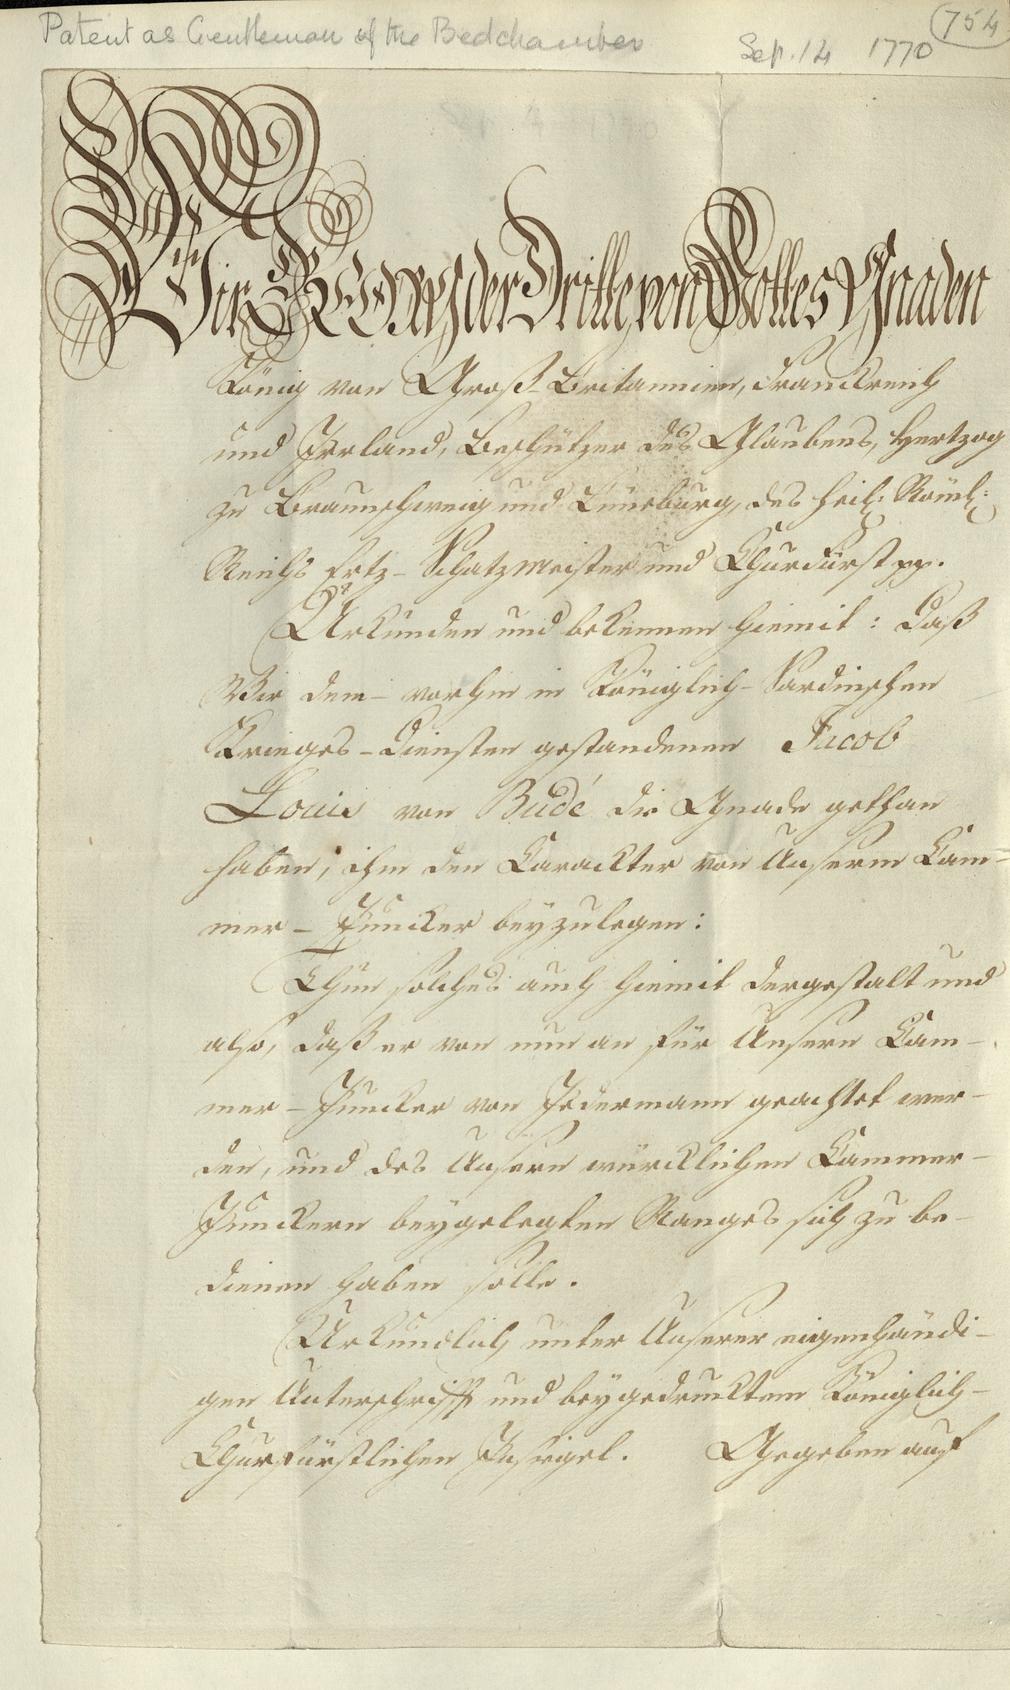 Patent as Gentleman of the Bedchamber
Sep. 14 1770
754
Wir GEORG der Dritte, von Gottes Gnaden
König von Groß-Britannien, Franckreich
und Irrland, Beschützer des Glaubens, Hertzog
zu Braunschweig und Lüneburg, des heil: Röm:
Reichs Ertz-Schatzmeister und Churfürst pp.
Urkunden und bekennen hiemit: Daß
Wir dem - vorhin in Königlich-Sardinischen
Krieges-Diensten gestandenen Jacob
Louis von Budé die Gnade gethan
haben, ihm den Caracter von Unserm Cam-
mer-Juncker beyzulegen:
Thun solches auch hiemit dergestalt und
also, daß er von nun an für Unsern Cam-
mer-Juncker von Jedermann geachtet wer-
den, und des Unsern würcklichen Cammer-
Junckern beygelegten Ranges sich zu be-
dienen haben solle.
Urkundlich unter Unserer eigenhändi-
gen Unterschrifft und beygedrucktem Königlich-
Churfürstlichen Insiegel. Gegeben auf